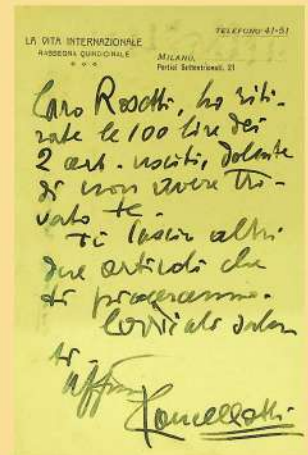 TELEFONO 41-51
LA VITA INTERNAZIONALE
RASSEGNA QUINDICINALE
MILANO,
Portici Settentrionali, 21
Caro Rosetti, ho riti-
rate le 100 lire dei
2 art. usciti, dolente
di non avere tro-
vato te.
Ti lascio altri
due articoli che
ti piaceranno.
Cordiali salu-
ti
aff.mo
Lancellotti